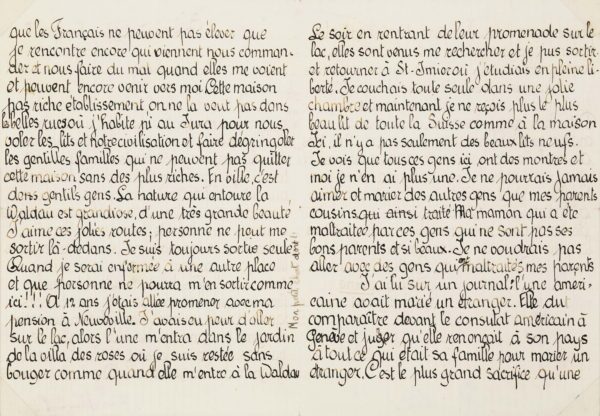 que les Français ne peuvent pas élever que
je rencontre encore qui viennent nous comman-
der et nous faire du mal quand elles me voient
et peuvent encore venir vers moi Cette maison
pas riche établissement on ne la veut pas dans
les belles rues où j'habite ni au Jura pour nous
voler les lits et notre civilisation et faire dégringoler
les gentilles familles qui ne peuvent pas quitter
cette maison sans des plus riches. En bille, c'est
dens gentils gens. La nature qui entoure la
Waldau est grandiose, d'une très grande beauté
J'aime ces jolies routes; personne ne peut me
sortir là-dedans. Je suis toujours sortie seule
Quand je serai enfermée à une autre place
et que personne ne pourra m'en sortir comme
ici!!! A 12 ans j'étais allée promener avec ma
pension à Neuveville. J'avais eu peur d'aller
sur le lac, alors l'une m'entra dans le jardin
de la villa des roses où je suis restée sans
bouger comme quand elle m'entre à la Waldau
Mon petit
Le soir en rentrant de leur promenade sur le
lac, elles sont venus me rechercher et je pus sortir
et retourner à St-Imier où j'étudiais en pleine li-
berté. Je couchais toute seule dans une jolie
chambre et maintenant je ne reçois plus le plus
beau lit de toute la Suisse comme à la maison
Ici, il n'y a pas seulement des beaux lits neufs.
Je vois que tous ces gens ici ont des montres et
moi je n'en ai plus une. Je ne pourrais jamais
aimer et marier des autres gens que mes parents
cousins, qui ainsi traité Ma maman qui a été
maltraitée par ces gens qui ne sont pas ses
bons parents et si beaux. Je ne voudrais pas
aller avec des gens qui maltraités mes parents
J'ai lu sur un journal: l'une améri-
caine avait marié un étranger. Elle dut
comparaître devant le consulat américain à
Genève et juger qu'elle renonçait à son pays
à tout ce qui était sa famille pour marier un
étranger. C'est le plus grand sacrifice qu'une